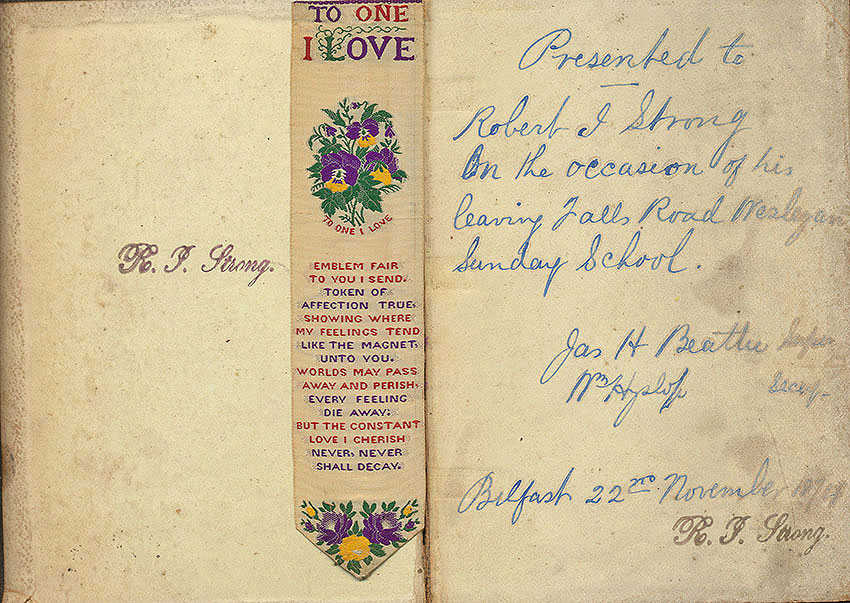 R. I. Strong.
TO ONE
I LOVE
TO ONE I LOVE
EMBLEM FAIR
TO YOU I SEND.
TOKEN OF
AFFECTION TRUE,
SHOWING WHERE
MY FEELINGS TEND
LIKE THE MAGNET,
UNTO YOU.
WORLDS MAY PASS
AWAY AND PERISH,
EVERY FEELING
DIE AWAY:
BUT THE CONSTANT
LOVE I CHERISH
NEVER, NEVER
SHALL DECAY.
Presented to
Robert I Strong
On the occasion of his
leaving Falls Road Wesleyan
Sunday School.
Jas H Beattie Super
Wm Hyslop
Belfast 22nd November
R. I. Strong.